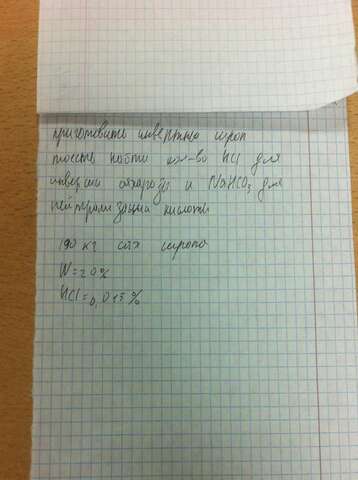 приготовить инвертный сироп
найти кол-во HCl для
инверсии сахарозы и NaHCO₃ для
нейтрализации кислоты
190 кг сах сиропа
W=20%
HCl=0,015%